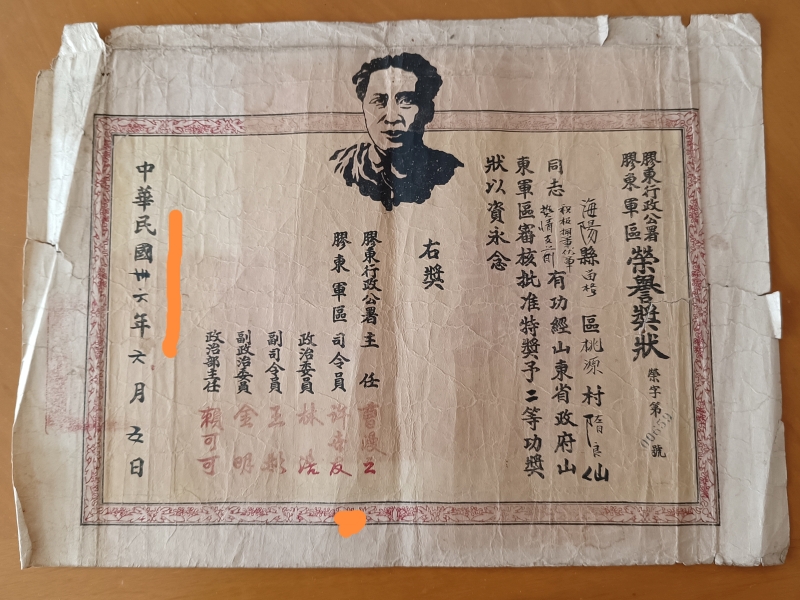 膠東行政公署
膠東軍區
榮譽獎狀
榮字第00659號
海陽縣區桃源村隋良仙
同志積極擁軍優軍有功經山東省政府山
東軍區審核批准特獎予二等功獎
狀以資永念
右獎
膠東行政公署主任 曹漫之
膠東軍區司令員 許世友
政治委員 林浩
副司令員 王彬
副政治委員 金明
政治部主任 賴可可
中華民國卅六年六月五日